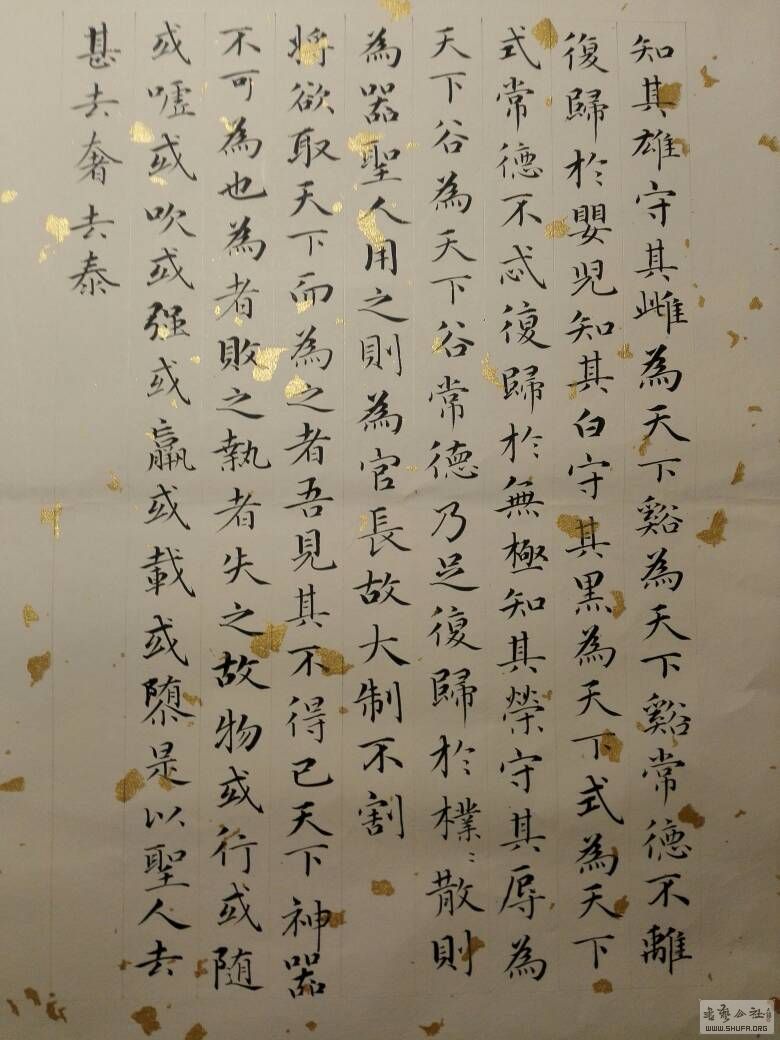 知其雄守其雌為天下谿為天下谿常德不離
復歸於嬰兒知其白守其黑為天下式為天下
式常德不忒復歸於無極知其榮守其辱為
天下谷為天下谷常德乃足復歸於樸〻散則
為器聖人用之則為官長故大制不割
將欲取天下而為之者吾見其不得已天下神器
不可為也為者敗之執者失之故物或行或随
或噓或吹或强或羸或載或隳是以聖人去
甚去奢去泰
書藝公社
WWW.SHUFA.ORG